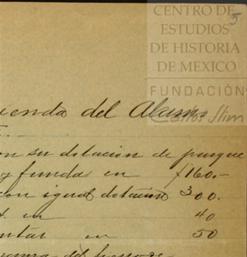 CENTRO DE
ESTUDIOS
DE HISTORIA
DE MEXICO
FUNDACIÓN
Carlos Slim
5
ienda del Alamo
on su dotacion de parque
y funda en $160.-
con igual dotacion 300.
en 40
en 50